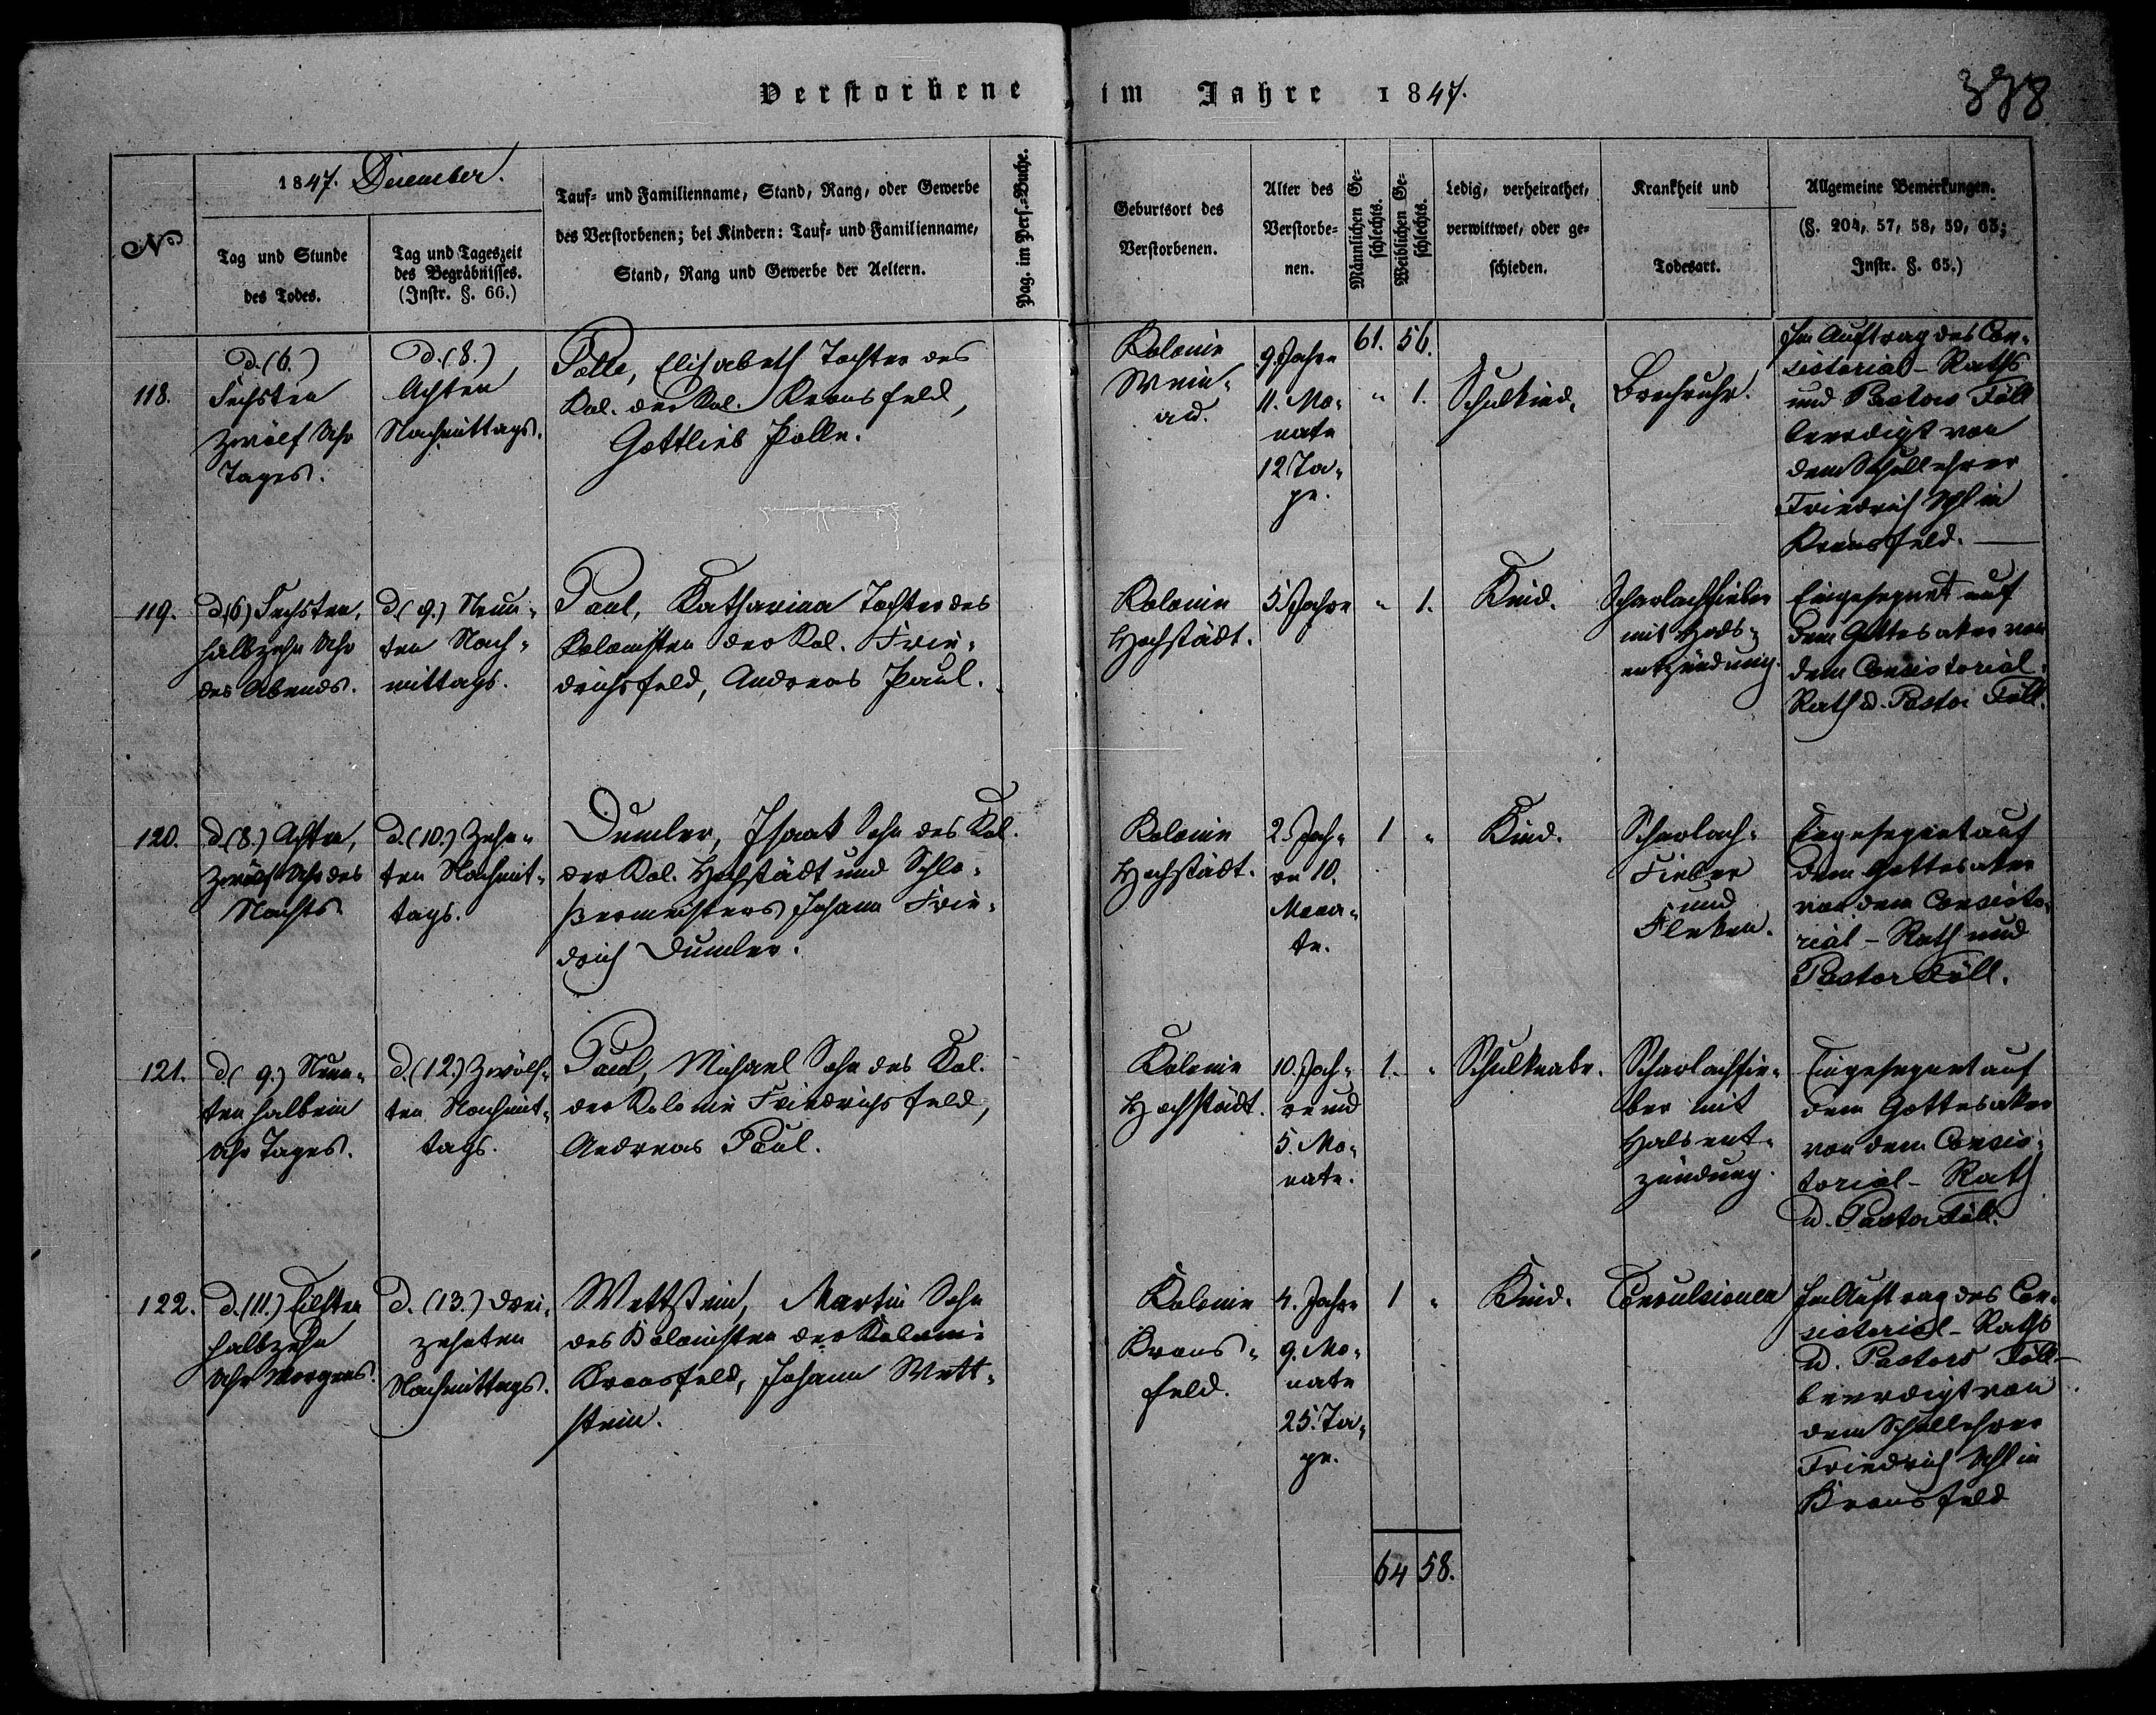 Verstorbene im Jahre 1847.
378
№
1847. December.
Tag und Stunde
des Todes.
Tag und Tageszeit
des Begräbnisses.
(Instr. §. 66.)
Tauf- und Familienname, Stand, Rang, oder Gewerbe
des Verstorbenen; bei Kindern: Tauf- und Familienname,
Stand, Rang und Gewerbe der Aeltern.
Pag. im Pers.-Buche.
Geburtsort des
Verstorbenen.
Alter des
Verstorbe-
nen.
Männlichen Ge-
schlechts.
Weiblichen Ge-
schlechts.
Ledig, verheirathet,
verwittwet, oder ge-
schieden.
Krankheit und
Todesart.
Allgemeine Bemerkungen.
(§. 204, 57, 58, 59, 63;
Instr. §. 65.)
61. 56.
118.
d. (6.)
Sechsten
zwölf Uhr
Tages.
d. (8.)
Achten
Nachmittags.
Polle, Elisabeth Tochter des
Kol. der Kol. Kronsfeld,
Gottlieb Polle.
Kolonie
Wein-
au.
9. Jahre
11. Mo-
nate
12 Ta-
ge.
" 1.
Schulkind.
Brechruhr.
Im Auftrag des Con-
sistorial-Raths
und Pastors Föll
beerdigt von
dem Schullehrer
Friedrich in
Kronsfeld.
119.
d. (6) Sechsten,
halbzehn Uhr
des Abends.
d. (9.) Neun-
ten Nach-
mittags.
Paul, Katharina Tochter des
Kolonisten der Kol. Frie-
drichsfeld, Andreas Paul.
Kolonie
Hochstädt.
5 Jahre
" 1.
Kind.
Scharlachfieber
mit Hals-
entzündung.
Eingesegnet auf
dem Gottesaker von
dem Consistorial-
Rath u. Pastor Föll.
120.
d. (8.) Achten,
zwölf Uhr des
Nachts.
d. (10.) Zehn-
ten Nachmit-
tags.
Dumler, Isaak Sohn des Kol.
der Kol. Hochstädt und Schlo-
ßermeisters Johann Frie-
drich Dumler.
Kolonie
Hochstädt.
2. Jah-
re 10.
Mona-
te.
1 "
Kind.
Scharlach-
Fieber
und
Fleken.
Eingesegnet auf
dem Gottesaker
von dem Consisto-
rial-Rath und
Pastor Föll.
121.
d. (9.) Neun-
ten halb ein
Uhr Tages.
d. (12.) Zwölf-
ten Nachmit-
tags.
Paul, Michael Sohn des Kol.
der Kolonie Friedrichsfeld,
Andreas Paul.
Kolonie
Hochstädt.
10. Jah-
re und
5. Mo-
nate.
1. "
Schulknabe.
Scharlachfie-
ber mit
Halsent-
zündung.
Eingesegnet auf
dem Gottesaker
von dem Consis-
torial-Rath
u. Pastor Föll.
122.
d. (11.) Eilften
halbzehn
Uhr Morgens.
d. (13.) Drei-
zehnten
Nachmittags.
Wettstein, Martin Sohn
des Kolonisten der Kolonie
Kronsfeld, Johann Wett-
stein.
Kolonie
Krons-
feld.
4. Jahre
9. Mo-
nate
25. Ta-
ge.
1 "
Kind.
Convulsionen
Im Auftrag des Con-
sistorial-Raths
u. Pastors Föll
beerdigt von
dem Schullehrer
Friedrich in
Kronsfeld
64 58.